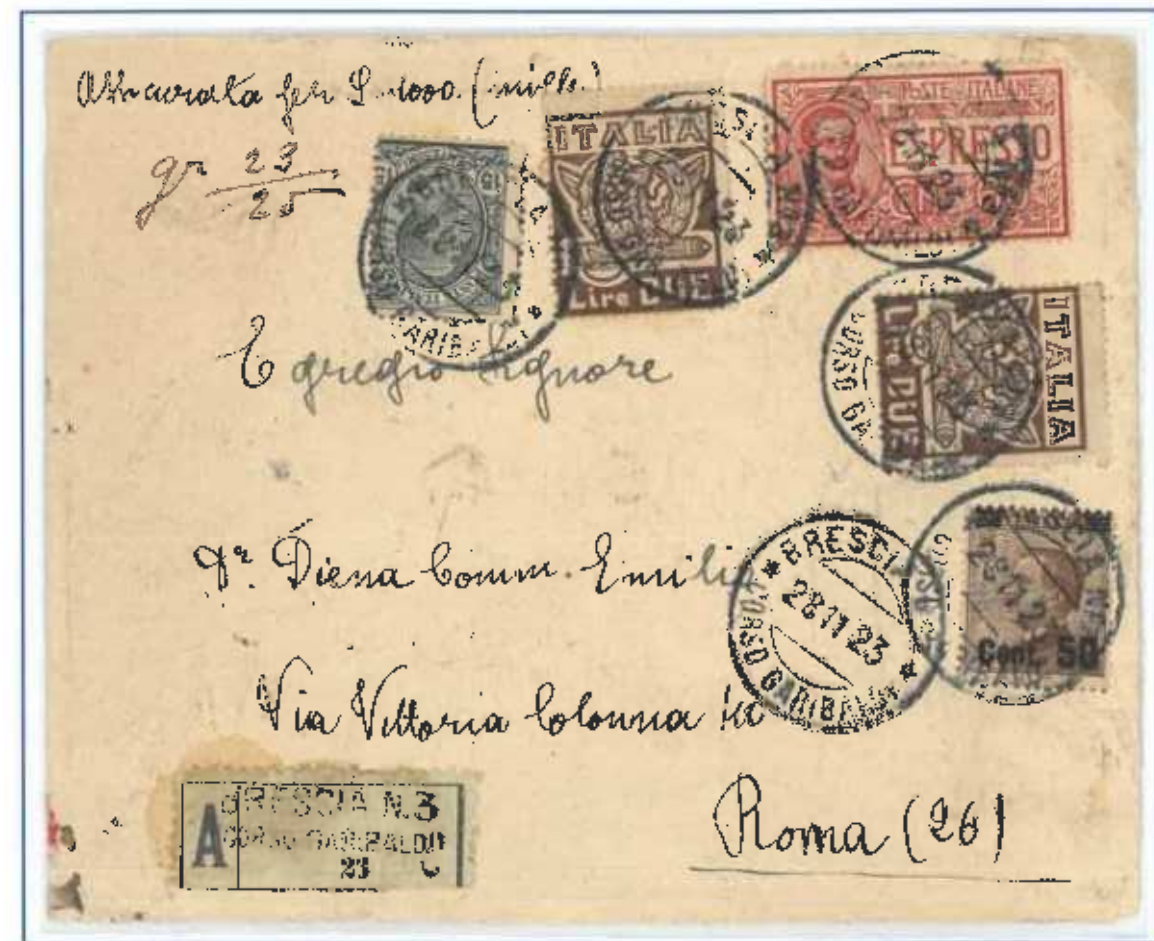 Assicurata per L. 1000. (mille)
gr 23
25
ITALIA
Lire DUE
15
POSTE ITALIANE
ESPRESSO
ITALIA
Lire DUE
Egregio Signore
Dr. Diena Comm. Emilio
BRESCIA
28 11 23
CORSO GARIBALDI
Cent. 50
Via Vittoria Colonna
A
BRESCIA N.3
CORSO GARIBALDI
23
Roma (26)